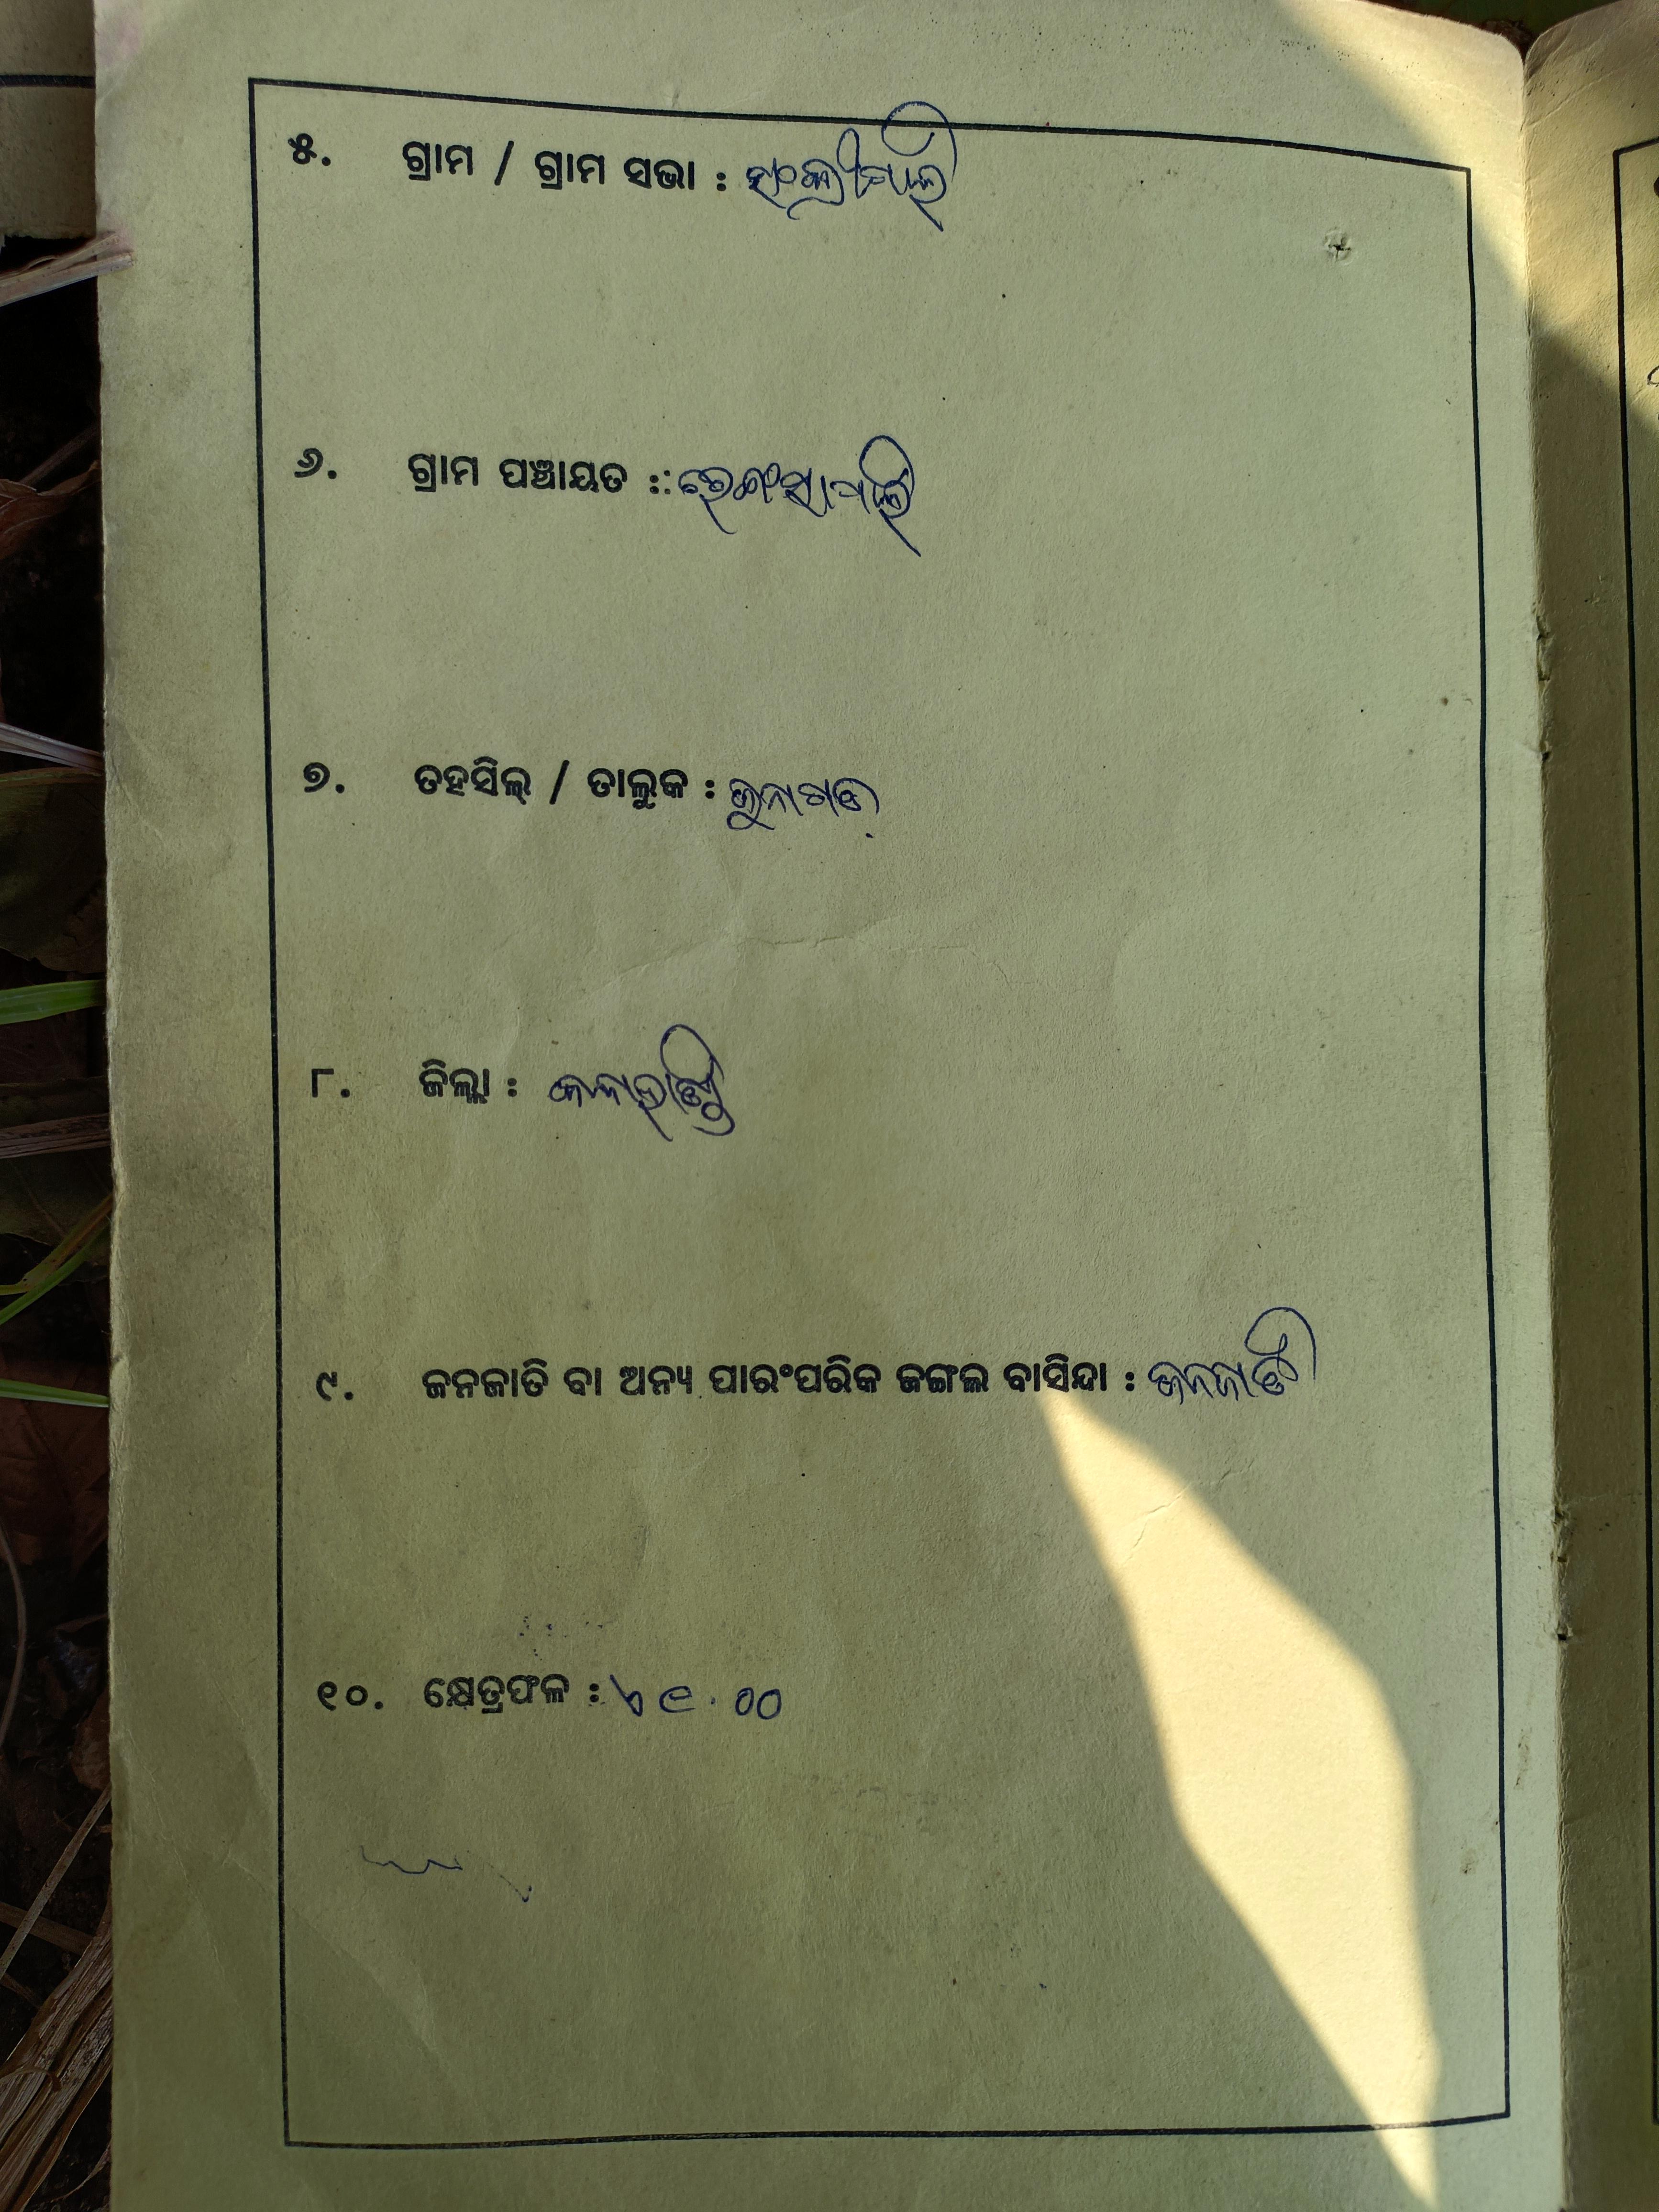 ୫. ଗ୍ରାମ / ଗ୍ରାମ ସଭା :
୬. ଗ୍ରାମ ପଞ୍ଚାୟତ :: ରେଙ୍ଗସାପାଲି
୭. ତହସିଲ୍ / ତାଲୁକ : ଜୁନାଗଡ଼
୮. ଜିଲ୍ଲା : କଳାହାଣ୍ଡି
୯. ଜନଜାତି ବା ଅନ୍ୟ ପାରଂପରିକ ଜଙ୍ଗଲ ବାସିନ୍ଦା : ଜନଜାତି
୧୦. କ୍ଷେତ୍ରଫଳ :